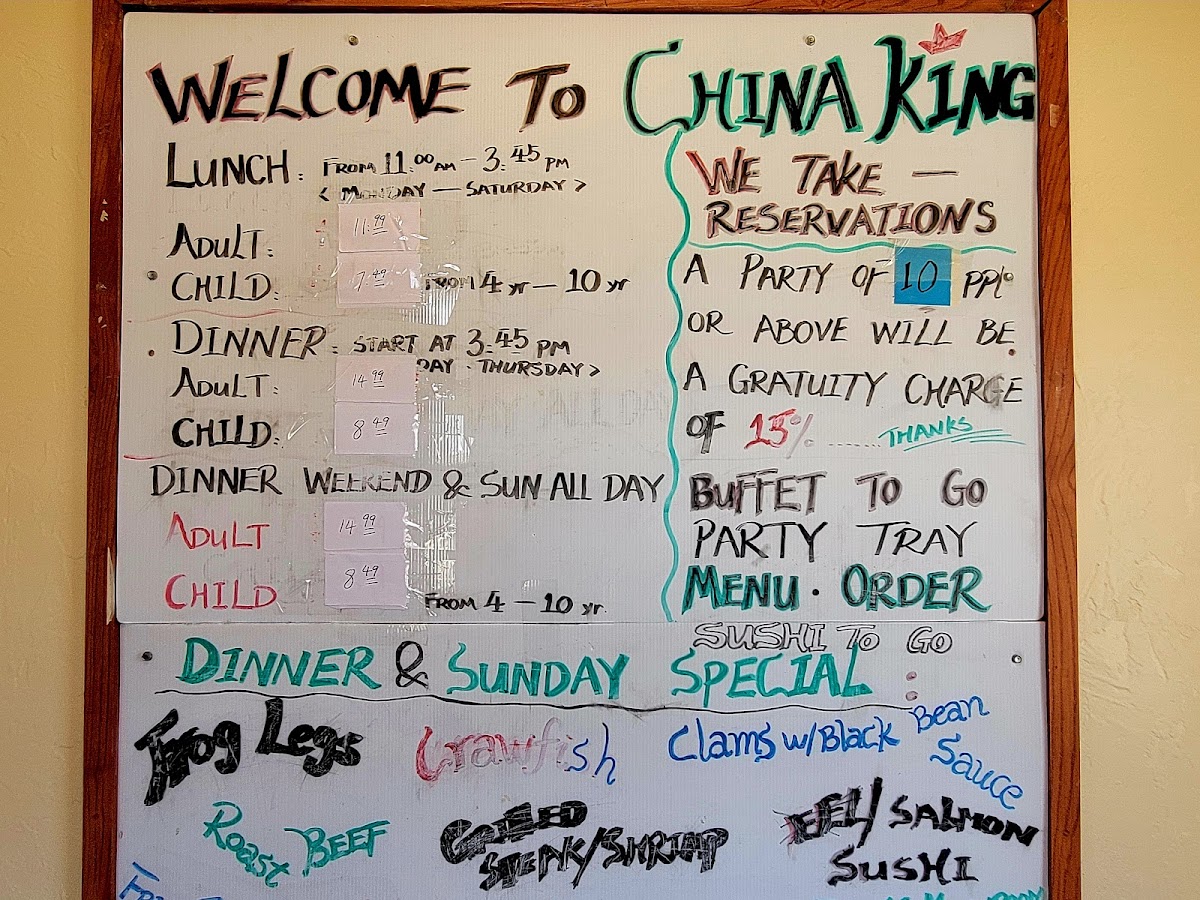 WELCOME TO CHINA KING
LUNCH: FROM 11:00 AM - 3:45 PM
< MONDAY — SATURDAY >
ADULT: 11.99
CHILD: 7.49 FROM 4 yr — 10 yr
DINNER: START AT 3:45 PM
DAY - THURSDAY >
ADULT: 14.99
CHILD: 8.49
DINNER WEEKEND & SUN ALL DAY
ADULT 14.99
CHILD 8.49 FROM 4 — 10 yr.
WE TAKE —
RESERVATIONS
A PARTY OF 10 PPL
OR ABOVE WILL BE
A GRATUITY CHARGE
OF 15% ...... THANKS
BUFFET TO GO
PARTY TRAY
MENU · ORDER
SUSHI TO GO
DINNER & SUNDAY SPECIAL :
Frog Legs
Crawfish
Clams w/Black Bean
Sauce
Roast BEEF
GRILLED
STEAK/SHRIMP
EEL/SALMON
SUSHI